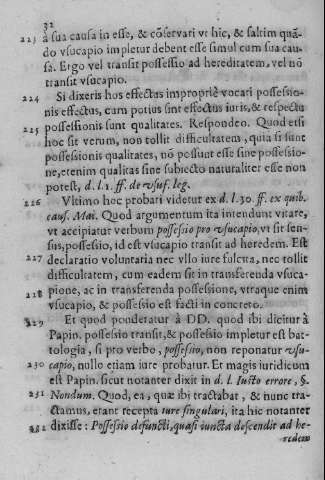 32
223 à sua causa in esse, & cõservari vt hic, & saltim quã-
do vsucapio impletur debent esse simul cum sua cau-
sa. Ergo vel transit possessio ad hereditatem, vel nõ
transit vsucapio.
224 Si dixeris hos effectus impropriè vocari possessio-
nis effectus, cum potius sint effectus iuris, & respectu
225 possessionis sunt qualitates. Respondeo. Quod etsi
hoc sit verum, non tollit difficultatem, quia si sunt
possessionis qualitates, nõ possunt esse sine possessio-
ne, etenim qualitas sine subiecto naturaliter esse non
potest, d. l. 1. ff. de vsuf. leg.
226 Vltimo hoc probari videtur ex d. l. 30. ff. ex quib.
caus. Mai. Quod argumentum ita intendunt vitare,
vt accipiatur verbum possessio pro vsucapio, vt sit sen-
sus, possessio, id est vsucapio transit ad heredem. Est
227 declaratio voluntaria nec vllo iure fulcita, nec tollit
difficultatem, cum eadem sit in transferenda vsuca-
228 pione, ac in transferenda possessione, vtraque enim
vsucapio, & possessio est facti in concreto.
229 Et quod ponderatur à DD. quod ibi dicitur à
Papin. possessio transit, & possessio impletur est bat-
tologia, si pro verbo, possessio, non reponatur vsu-
230 capio, nullo etiam iure probatur. Et magis iuridicum
est Papin. sicut notanter dixit in d. l. Iusto errore, §.
231 Nondum. Quod, ea, quæ ibi tractabat, & nunc tra-
ctamus, erant recepta iure singulari, ita hic notanter
232 dixisse: Possessio defuncti, quasi iuncta descendit ad he-
redem